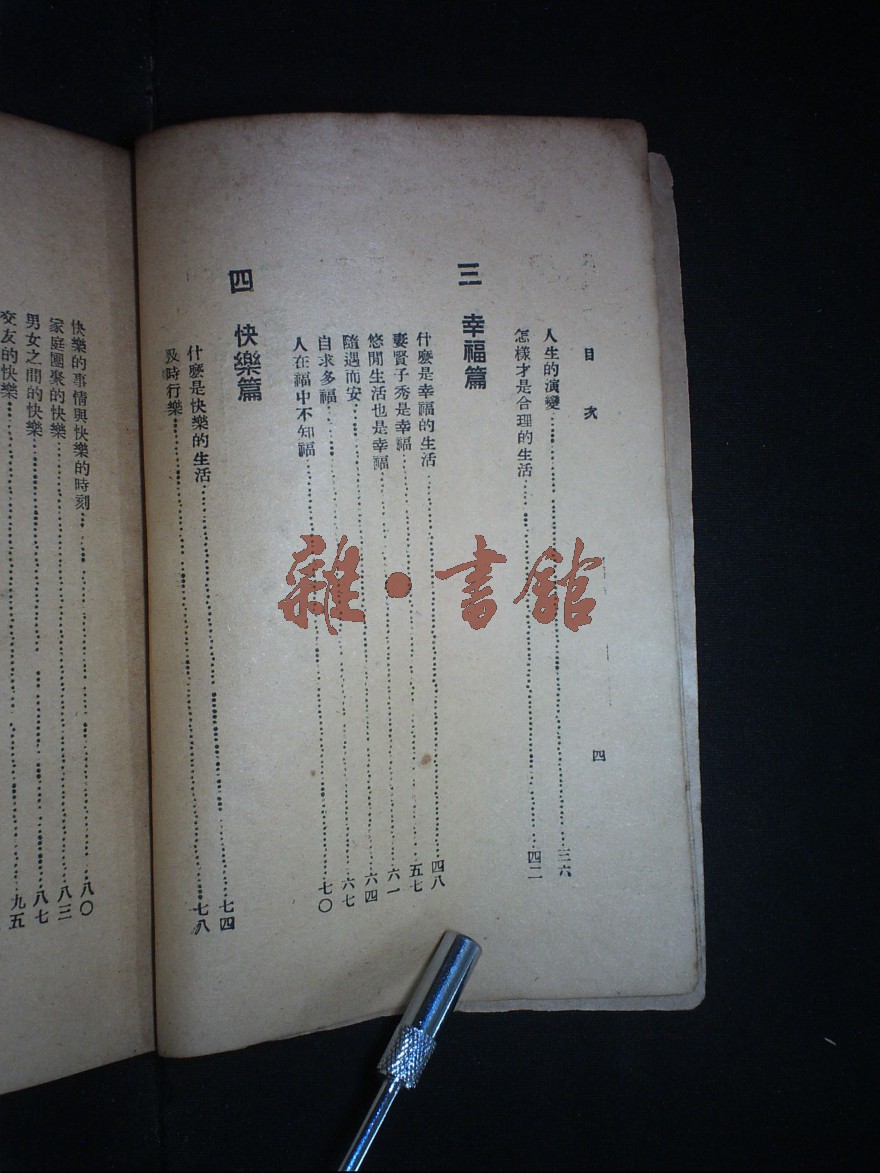 目次
四
人生的演變……三六
怎樣才是合理的生活……四二
三 幸福篇
什麼是幸福的生活……四八
妻賢子秀是幸福……五七
悠閒生活也是幸福……六一
隨遇而安……六四
自求多福……六七
人在福中不知福……七〇
四 快樂篇
什麼是快樂的生活……七四
及時行樂……七八
快樂的事情與快樂的時刻……八〇
家庭團聚的快樂……八三
男女之間的快樂……八七
交友的快樂……九五
雜·書館